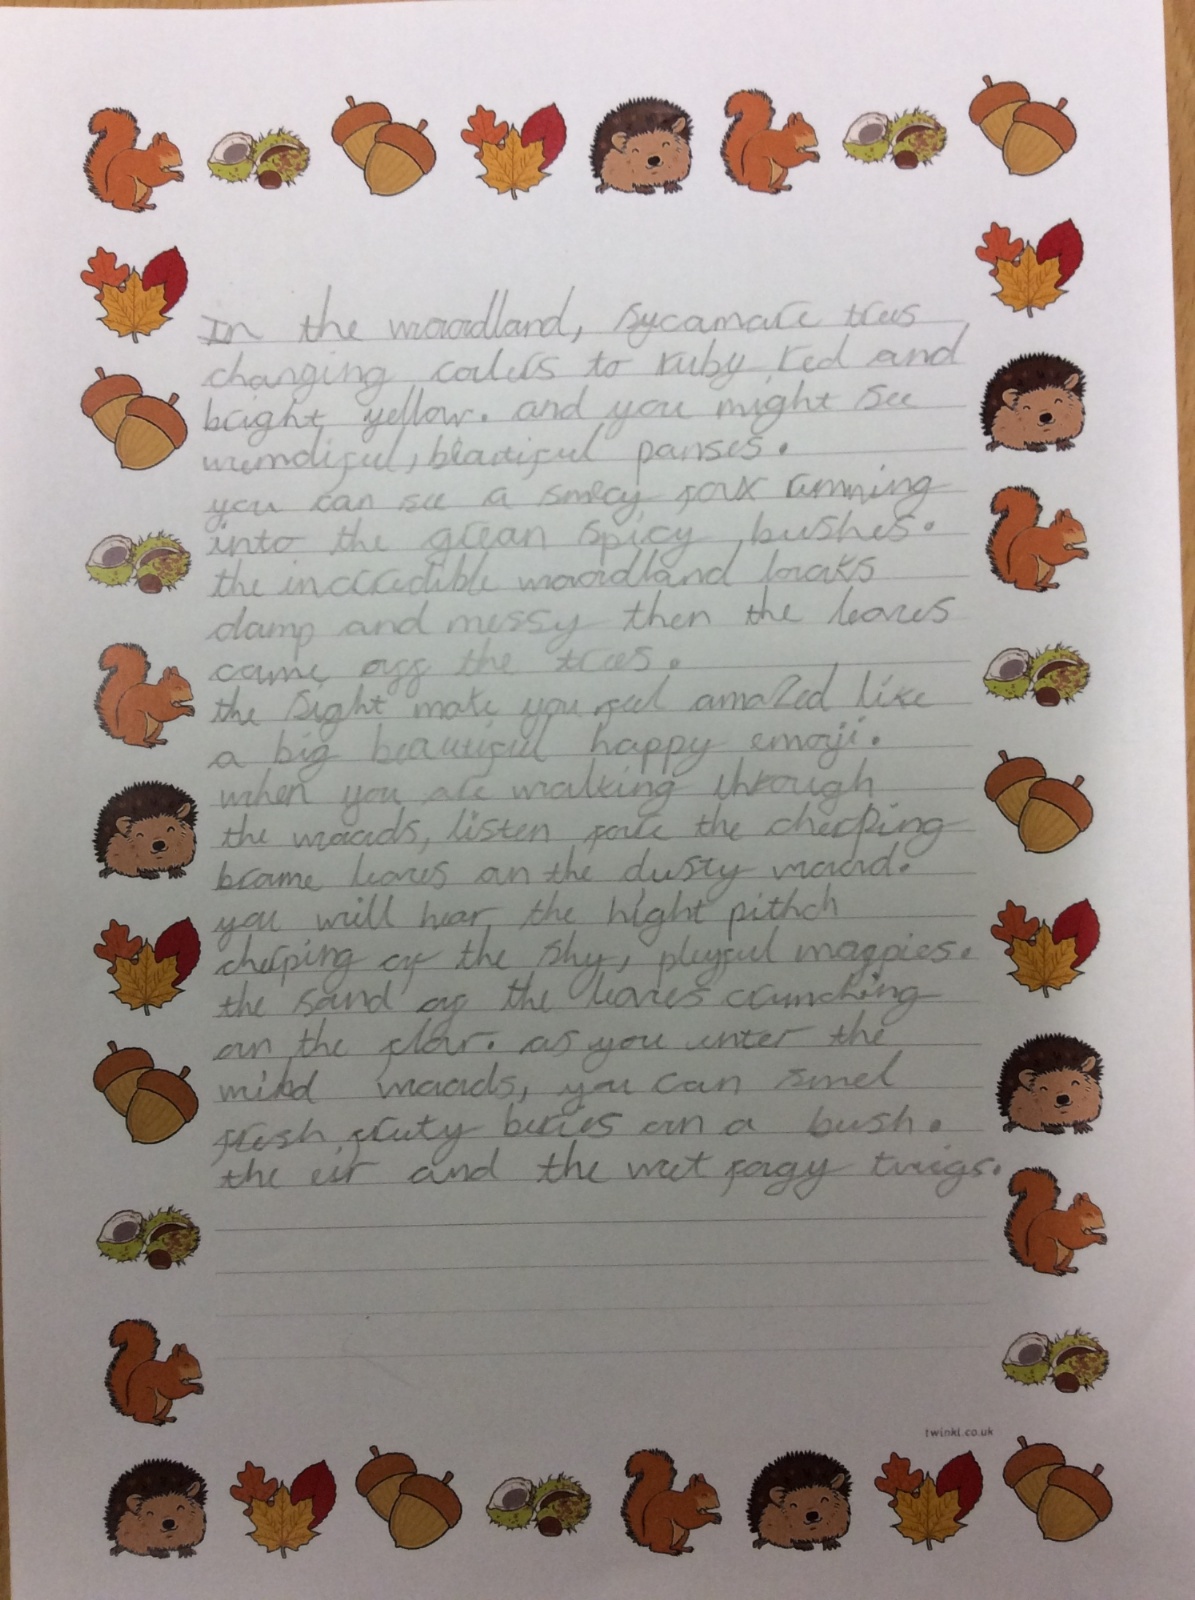 In the woodland, sycamore trees
changing colers to ruby red and
bright yellow. and you might see
beautiful panses.
you can see a foux running
into the grean spicy bushes.
the incredible woodland looks
damp and messy then the leaves
came off the trees.
the sight make you feel amazed like
a big beautiful happy emoji.
when you are walking through
the woods, listen foure the cherping
browne leaves on the dusty wood.
you will hear the hight pithch
cherping of the shy, playful magpies.
the sand of the leaves crunching
on the flour. as you unter the
woods, you can smel
fresh fruty beries on a bush.
the eir and the wet fogy twigs.
twinkl.co.uk